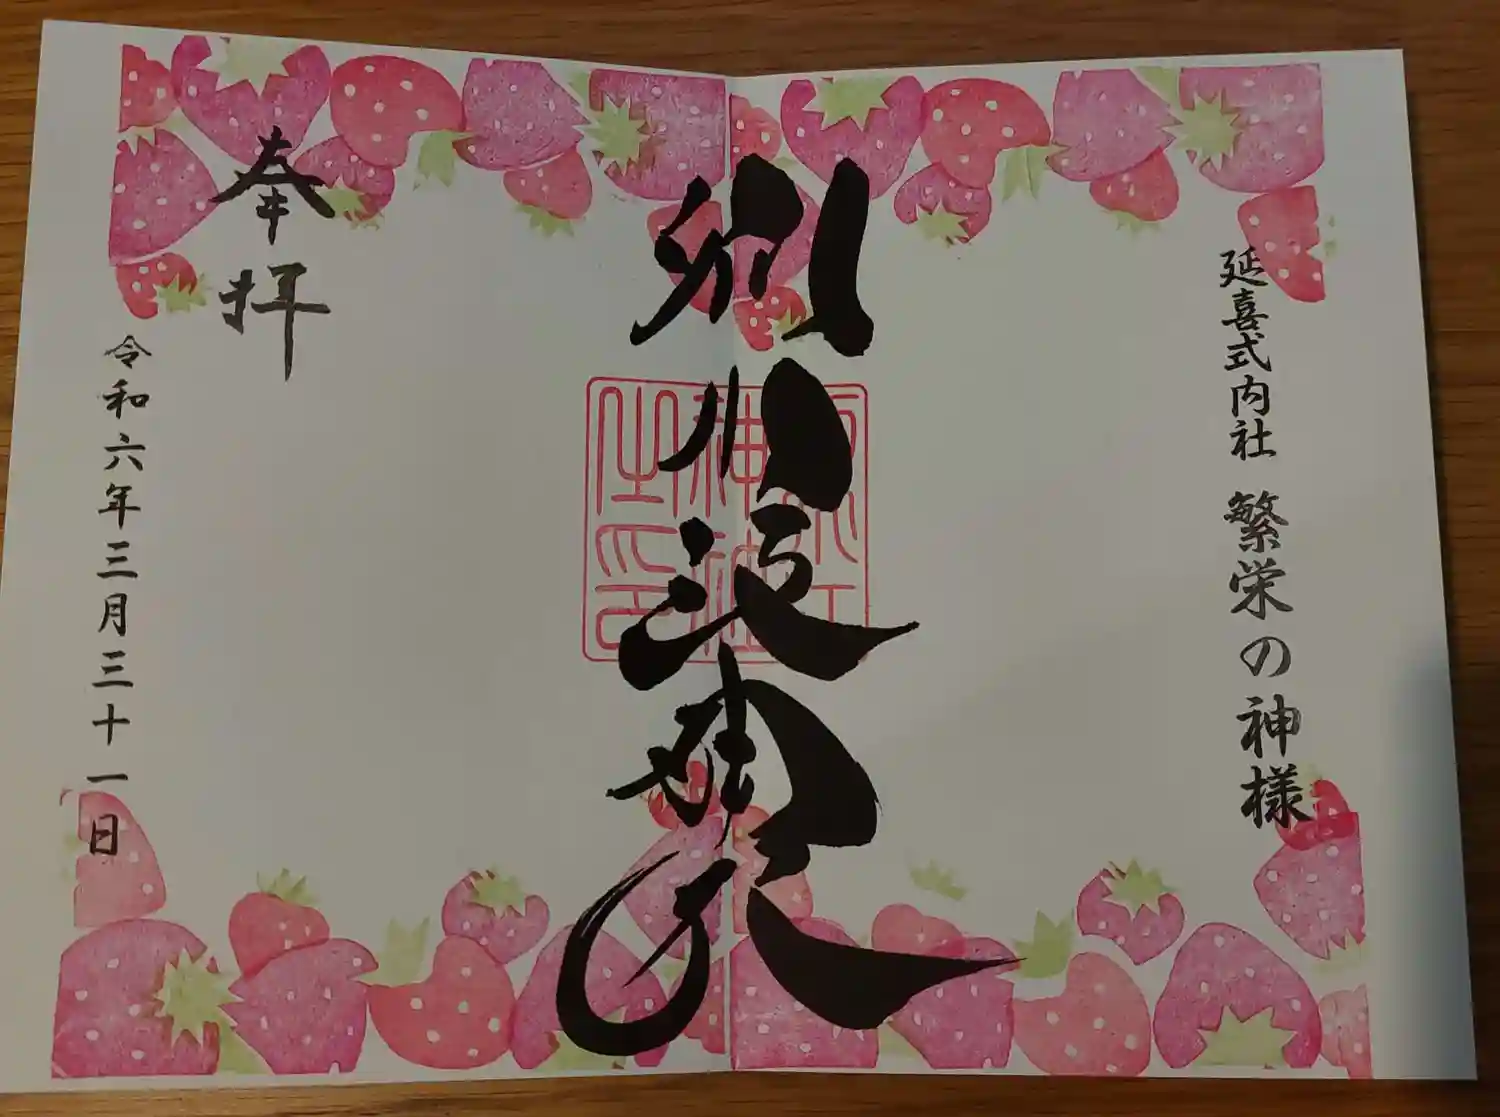 延喜式内社 繁栄の神様
別小江神社
別小江
神社
之印
奉拝
令和六年三月三十一日